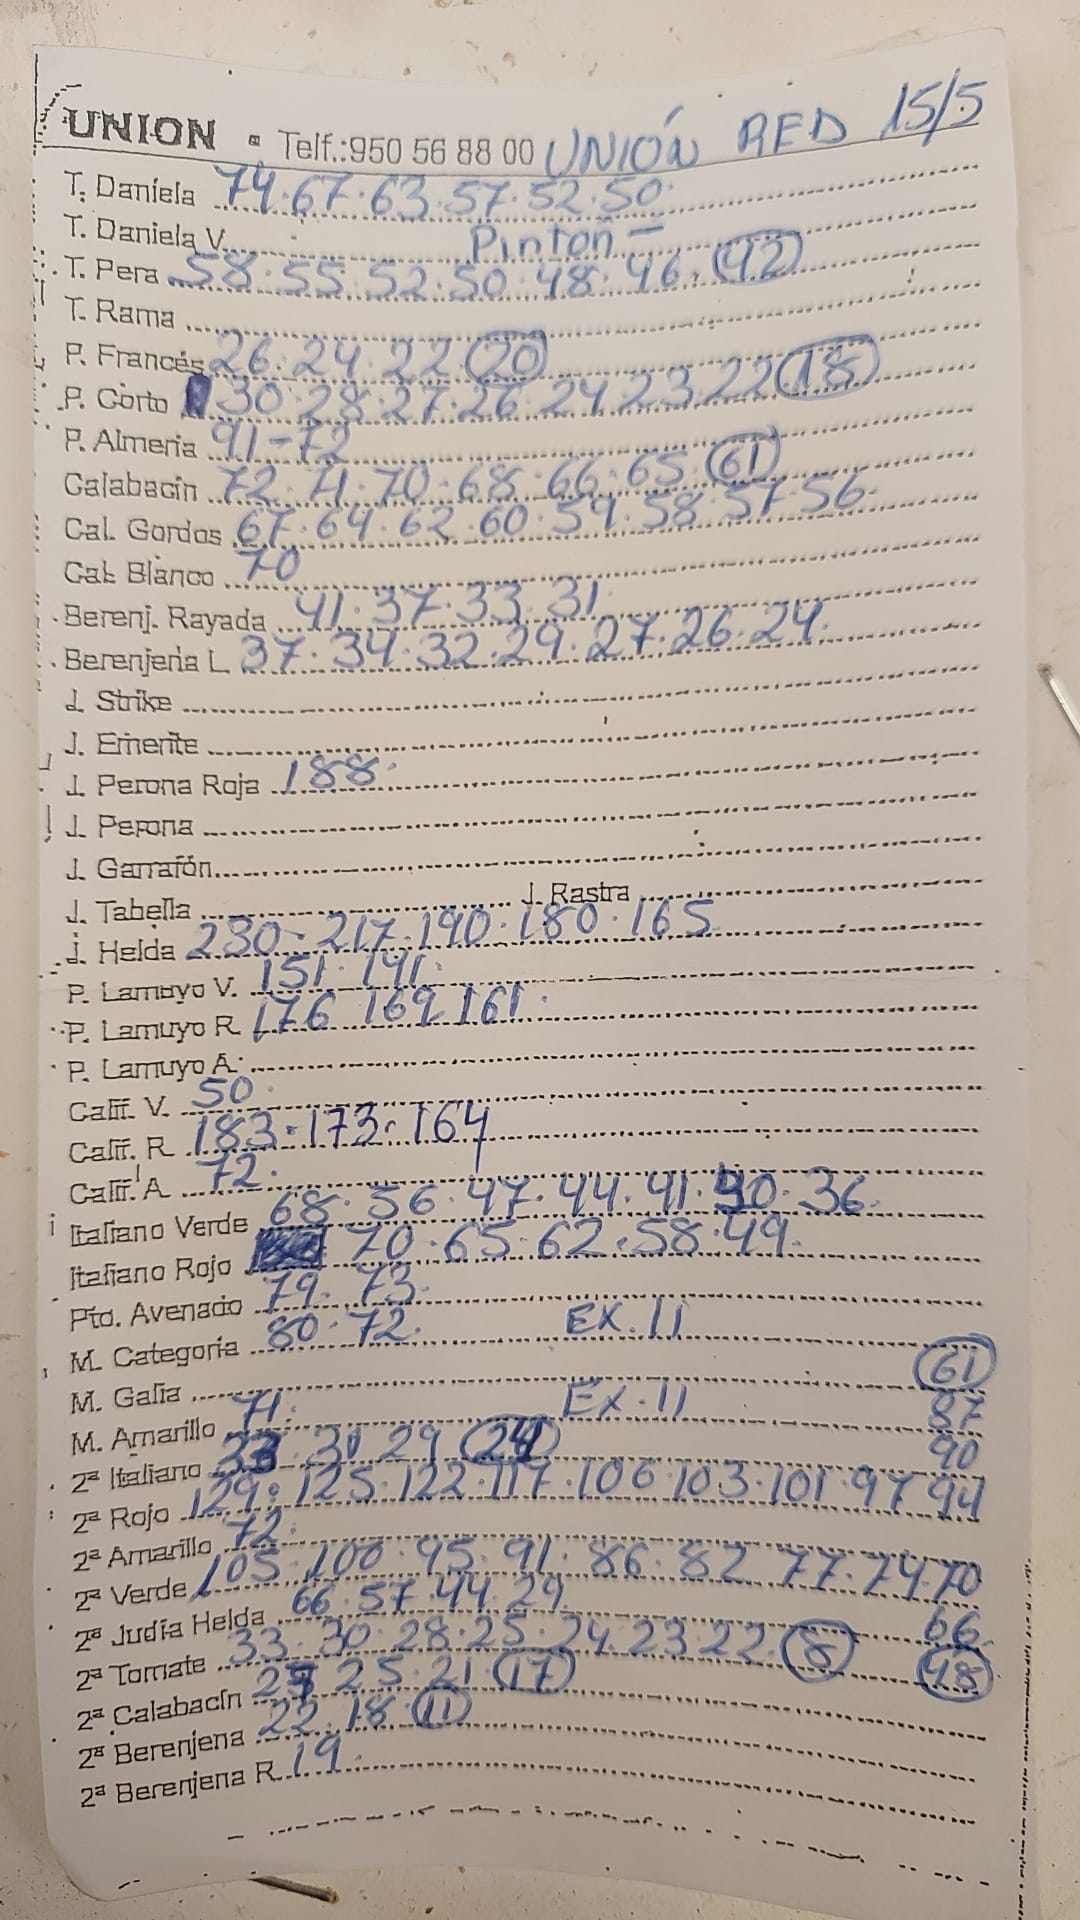 UNION - Telf.:950 56 88 00 UNIÓN RED 15/5
T. Daniela 74.67.63.57.52.50.
T. Daniela V. Pinton -
T. Pera 58.55.52.50.48.46. (42)
T. Rama
P. Francés 26.24.22 (20)
P. Corto 30.28.27.26.24.23.22 (18)
P. Almeria 91-72
Calabacín 72.71.70.68.66.65. (61)
Cal. Gordos 67.64.62.60.59.58.57.56.
Cal. Blanco 70
Berenj. Rayada 41.37.33.31.
Berenjena L. 37.34.32.29.27.26.24.
J. Strike
J. Emerite
J. Perona Roja 188.
J. Perona
J. Garrafón
J. Tabella J. Rastra
J. Helda 230-217.190.180.165
P. Lamuyo V. 151.141.
P. Lamuyo R. 176 169 161.
P. Lamuyo A.
Calif. V. 50.
Calif. R. 183.173.164
Calif. A. 72.
Italiano Verde 68.56.47.44.41.40.36.
Italiano Rojo 70.65.62.58.49.
Pto. Avenado 79.73.
M. Categoria 80.72. EX.11
M. Galia (61)
M. Amarillo 71. Ex.11 87
2ª Italiano 33.31 29 (24) 90
2ª Rojo 129.125.122.117.106.103.101.97 94
2ª Amarillo 72.
2ª Verde 105.100.95.91.86.82 77.74.70
2ª Judía Helda 66.57.44.29. 66.
2ª Tomate 33.30.28.25.24.23.22. (8) (48)
2ª Calabacín 25.21.(17)
2ª Berenjena 22.18.(11)
2ª Berenjena R. 19.